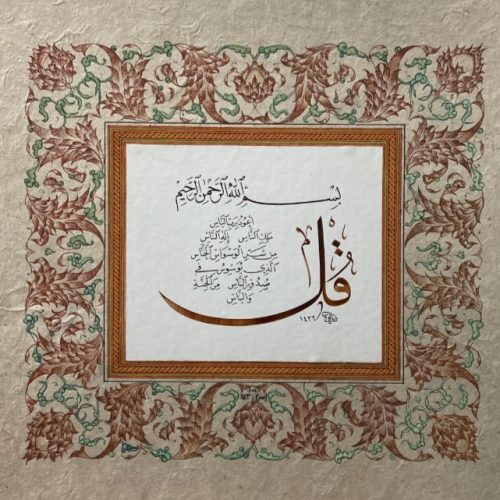 بسم الله الرحمن الرحيم
قل
أعوذ برب الناس
ملك الناس إله الناس
من شر الوسواس الخناس
الذي يوسوس في
صدور الناس من الجنة
والناس
١٤٢٩